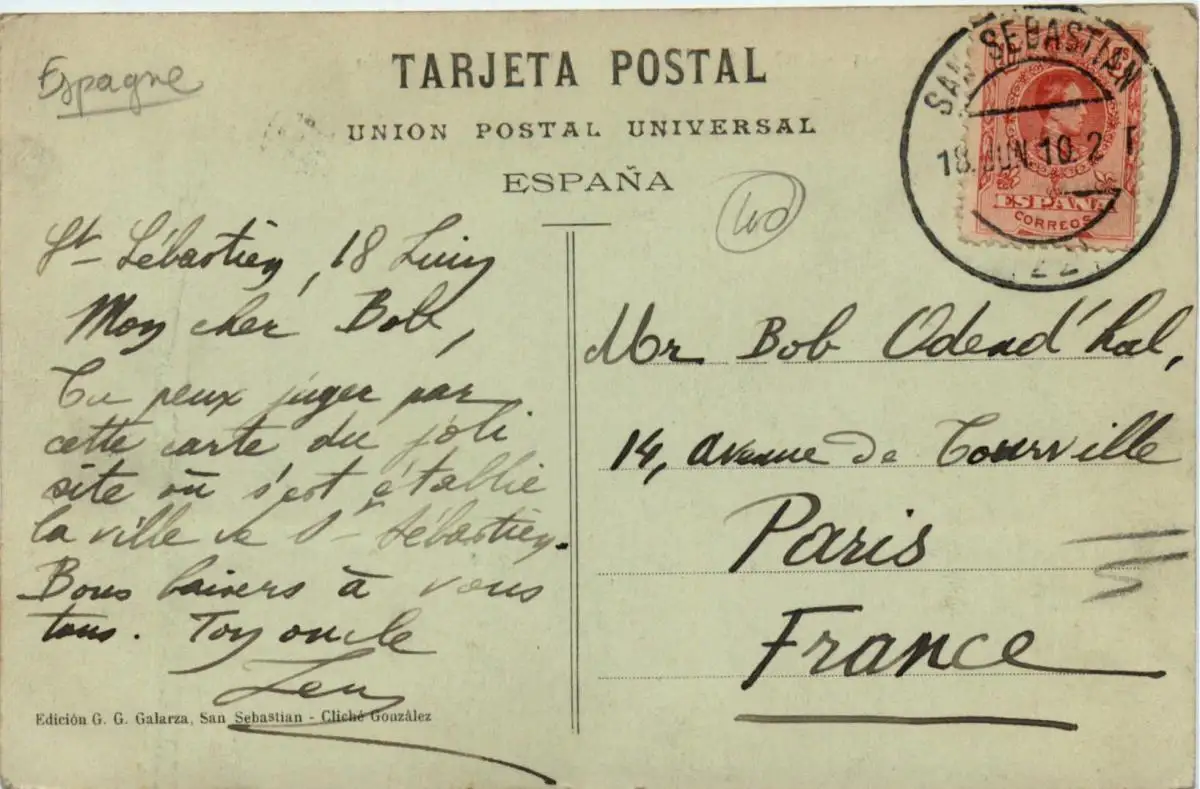 Espagne
TARJETA POSTAL
UNION POSTAL UNIVERSAL
ESPAÑA
SAN SEBASTIAN
18.JUN.10.2 T
ESPAÑA
CORREOS
St Sébastien, 18 Juin
Mon cher Bob,
Tu peux juger par
cette carte du joli
site où s'est établie
la ville de St Sébastien.
Bons baisers à vous
tous. Ton oncle
Mr Bob Odend'hal,
14, avenue de Tourville
Paris
France
Edición G. G. Galarza, San Sebastian - Cliché González